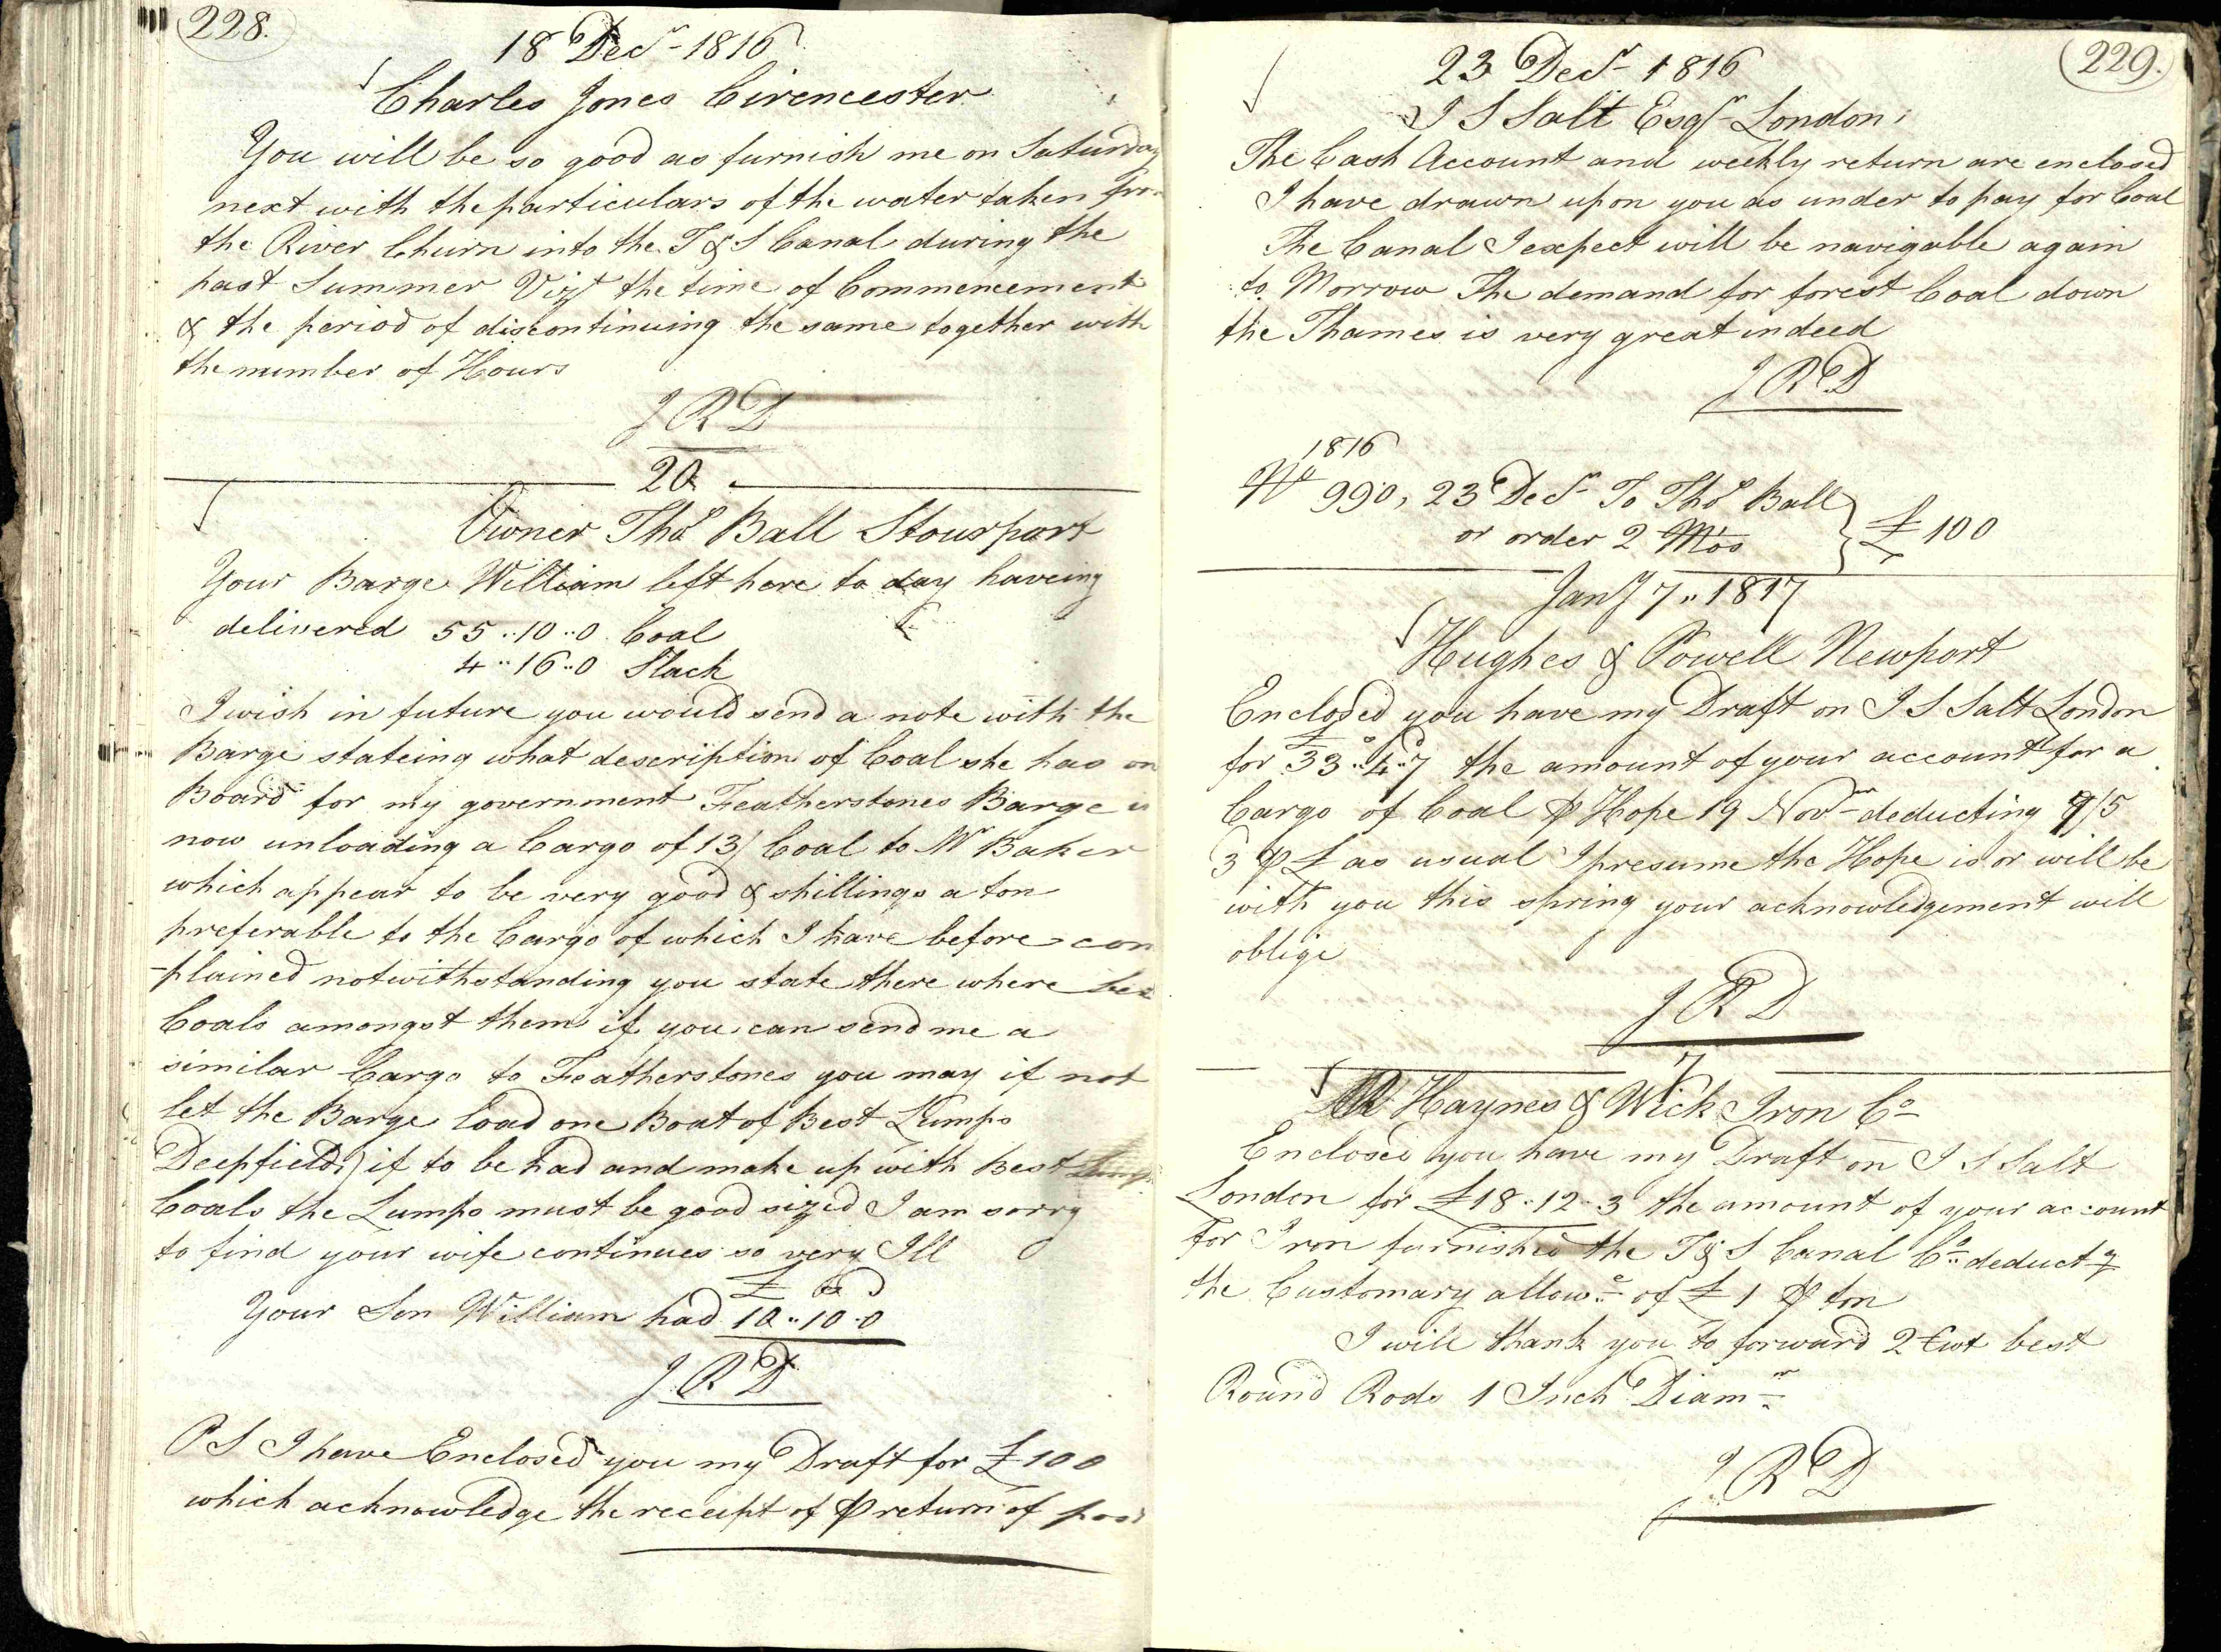 228.
18 Decr 1816
Charles Jones Cirencester
You will be so good as furnish me on Saturday
next with the particulars of the water taken from
the River Churn into the T & S Canal during the
past Summer Vizt the time of Commencement
& the period of discontinuing the same together with
the number of Hours
J R D
20
Owner Thos Ball Stourport
Your Barge William left here to day haveing
delivered 55..10..0 Coal
4..16..0 Slack
I wish in future you would send a note with the
Barge stateing what description of Coal she has on
Board for my government Featherstones Barge is
now unloading a Cargo of 13/ Coal to Mr Baker
which appear to be very good & shillings a ton
preferable to the Cargo of which I have before com
-plained notwithstanding you state there where
Coals amongst them if you can send me a
similar Cargo to Featherstones you may if not
let the Barge load one Boat of Best Lumps
Deepfields) if to be had and make up with Best
Coals the Lumps must be good sized I am sorry
to find your wife continues so very Ill
£ s d
Your Son William had 10..10..0
J R D
P S I have Enclosed you my Draft for £100
which acknowledge the receipt of ⅌ return of post
229.
23 Decr 1816
J S Salt Esqr London
The Cash Account and weekly return are enclosed
I have drawn upon you as under to pay for Coal
The Canal I expect will be navigable again
to Morrow The demand for forest Coal down
the Thames is very great indeed
J R D
1816
No 990, 23 Decr To Thos Ball
or order 2 Mos } £100
Jany 7,, 1817
Hughes & Powell Newport
Enclosed you have my Draft on J S Salt London
£ s d
for 33..4..7 the amount of your account for a
Cargo of Coal ⅌ Hope 19 Novr deducting 9/5
3 ⅌ £ as usual I presume the Hope is or will be
with you this spring your acknowledgement will
oblige
J R D
7
Haynes & Wick Iron Co
Enclosed you have my Draft on J S Salt
London for £18..12..3 the amount of your account
for Iron furnished the T & S Canal Co deductg
the Customary allowe of £1 ⅌ ton
I will thank you to forward 2 Cwt best
Round Rods 1 Inch Diamr
J R D